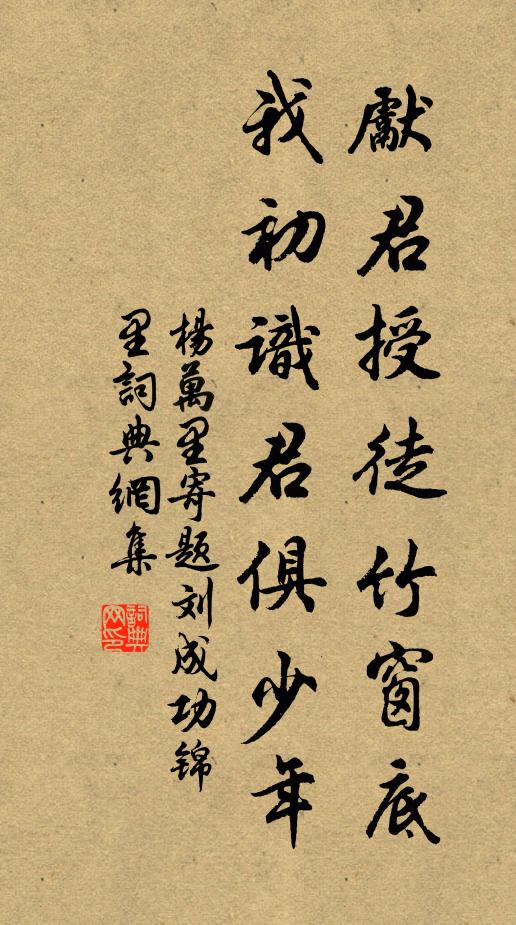 獻君授徒竹窗底
我初識君俱少年
楊萬里寄題刘成功锦
里詞典網集
詞典網印